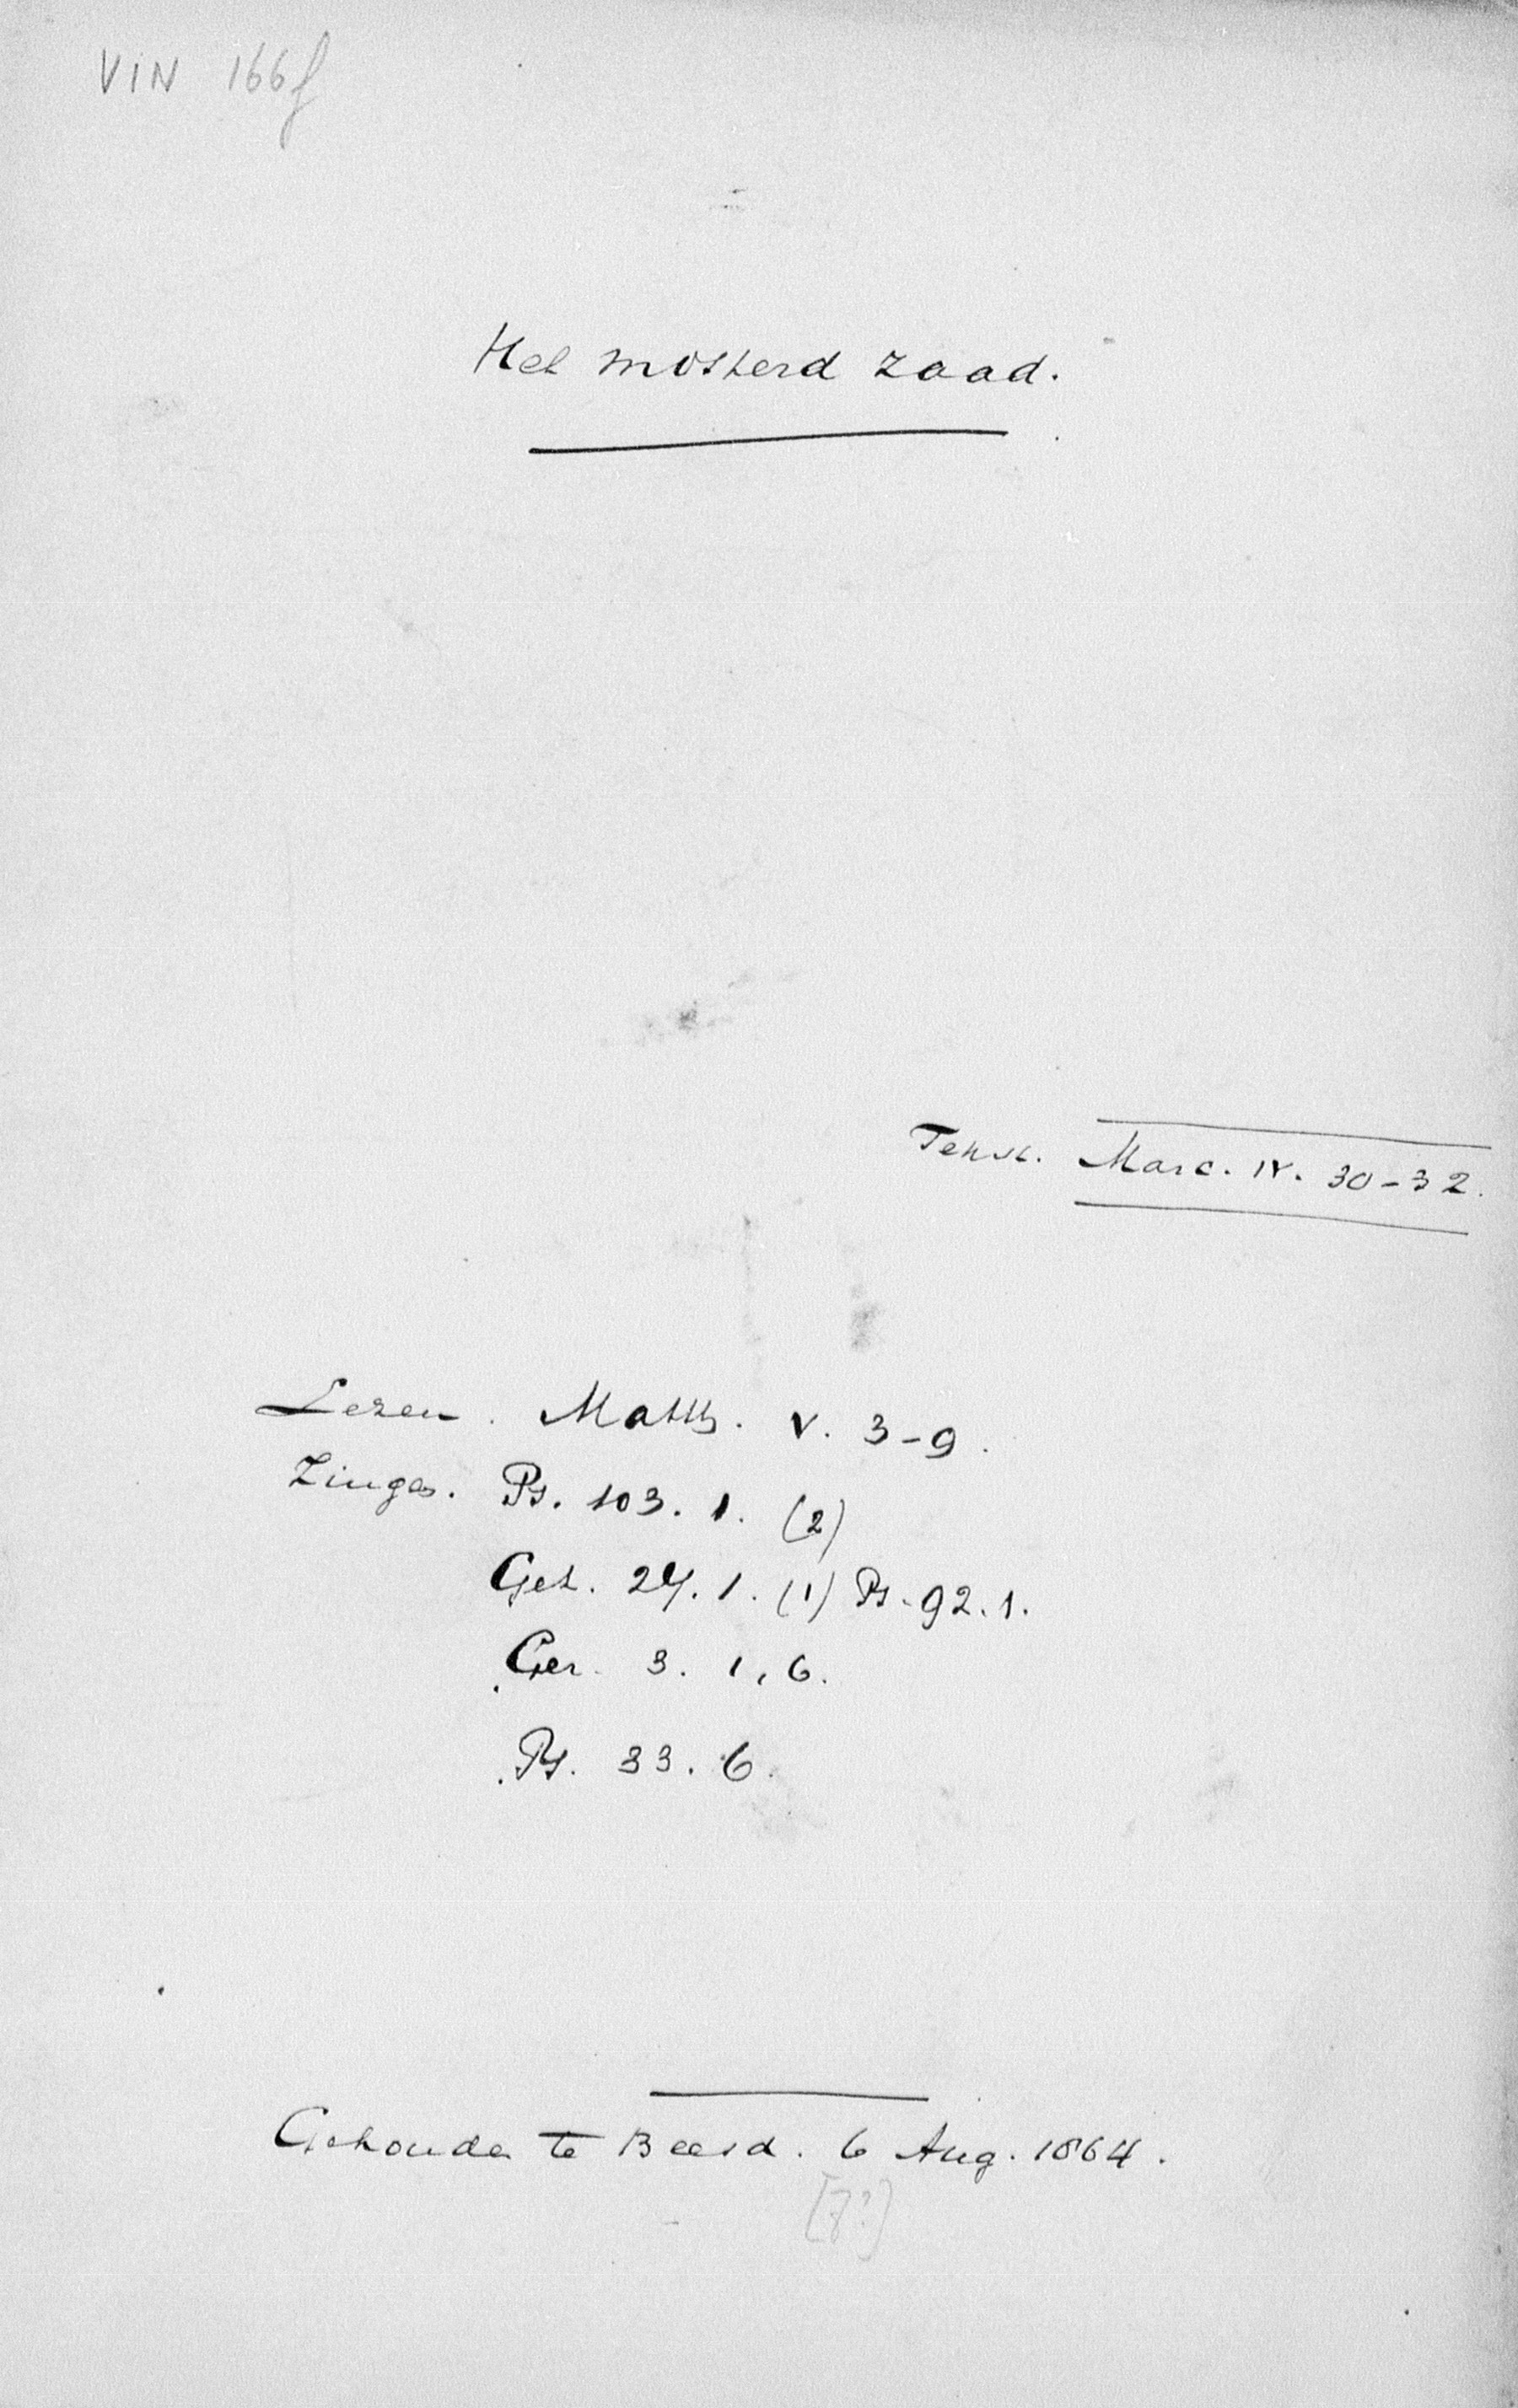 VIN 166f
Het mosterd zaad.
Tekst. Marc. IV. 30-32.
Lezen. Matth. V. 3-9.
Zingen. Ps. 103. 1. (2)
Gez. 24. 1. (1) Ps. 92. 1.
Gez. 3. 1, 6.
Ps. 33. 6.
Gehouden te Beesd. 6 Aug. 1864.
[7?]